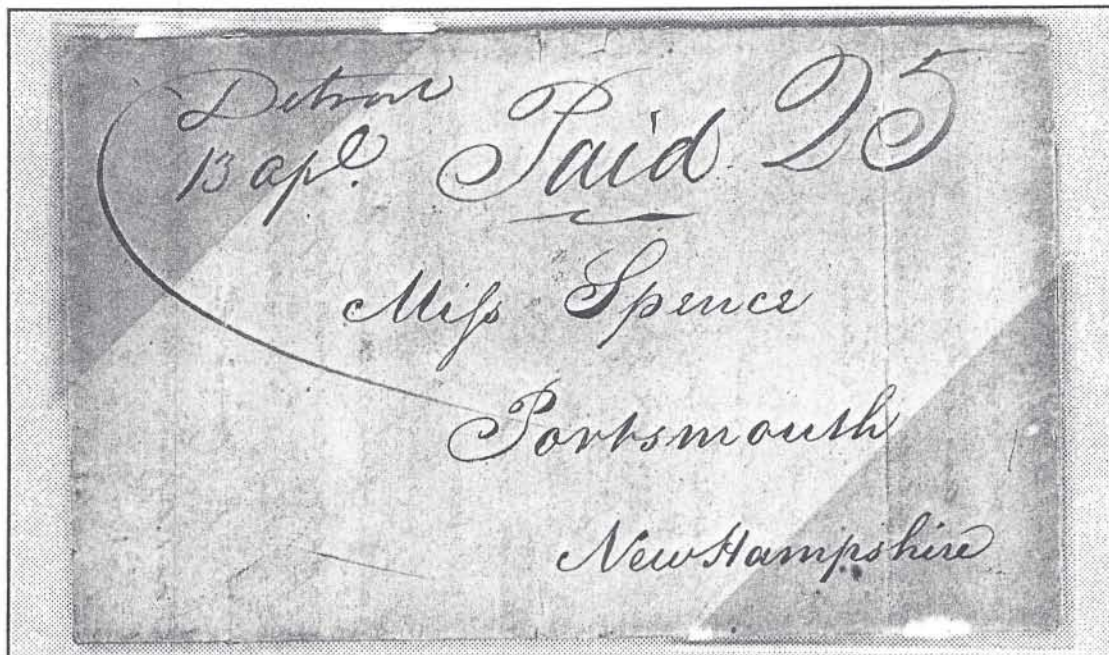 Detroit Paid 25
13 apl.
Miſs Spence
Portsmouth
New Hampshire